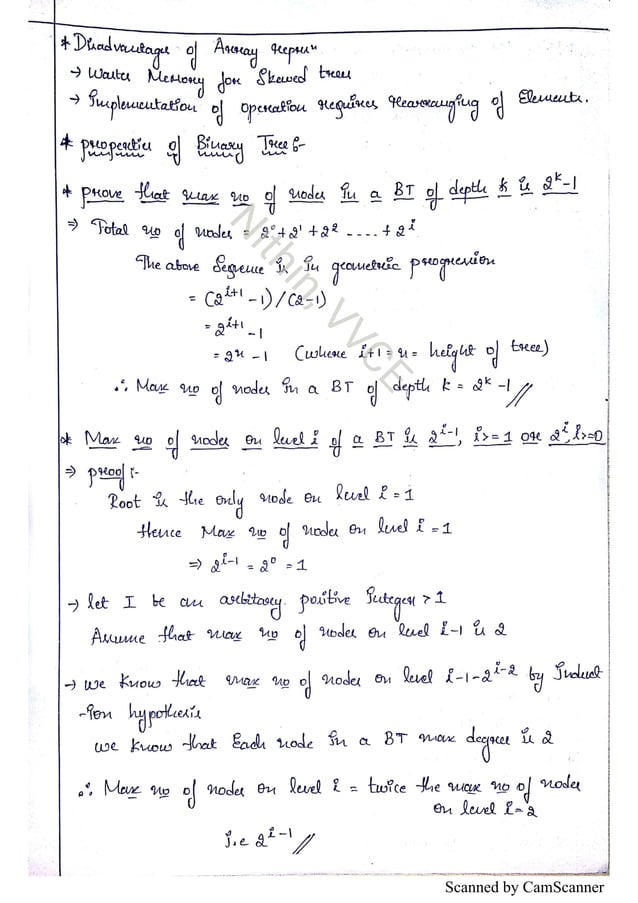 * Disadvantages of Array repsn"
→ Wastes Memory for Skewed trees
→ Implementation of operation requires rearranging of Elements.
* properties of Binary Tree :-
* prove that max no of nodes in a BT of depth k is 2^k-1
⇒ Total no of nodes = 2^0 + 2^1 + 2^2 ..... + 2^i
The above Sequence is in geometric progression
= (2^{i+1} - 1) / (2-1)
= 2^{i+1} - 1
= 2^n - 1 (where i+1 = n = height of tree)
∴ Max no of nodes in a BT of depth k = 2^k - 1 //
* Max no of nodes on level i of a BT is 2^{i-1}, i>=1 or 2^i, i>=0
⇒ proof :-
Root is the only node on level i = 1
Hence Max no of nodes on level i = 1
⇒ 2^{i-1} = 2^0 = 1
→ let I be an arbitary positive Integer > 1
Assume that max no of nodes on level i-1 is 2
→ we know that max no of nodes on level i-1-2^{i-2} by Induct
-ion hypothesis
we know that Each node in a BT max degree is 2
∴ Max no of nodes on level i = twice the max no of nodes
on level i=2
i.e 2^{i-1} //
Nithin, VVCE
Scanned by CamScanner